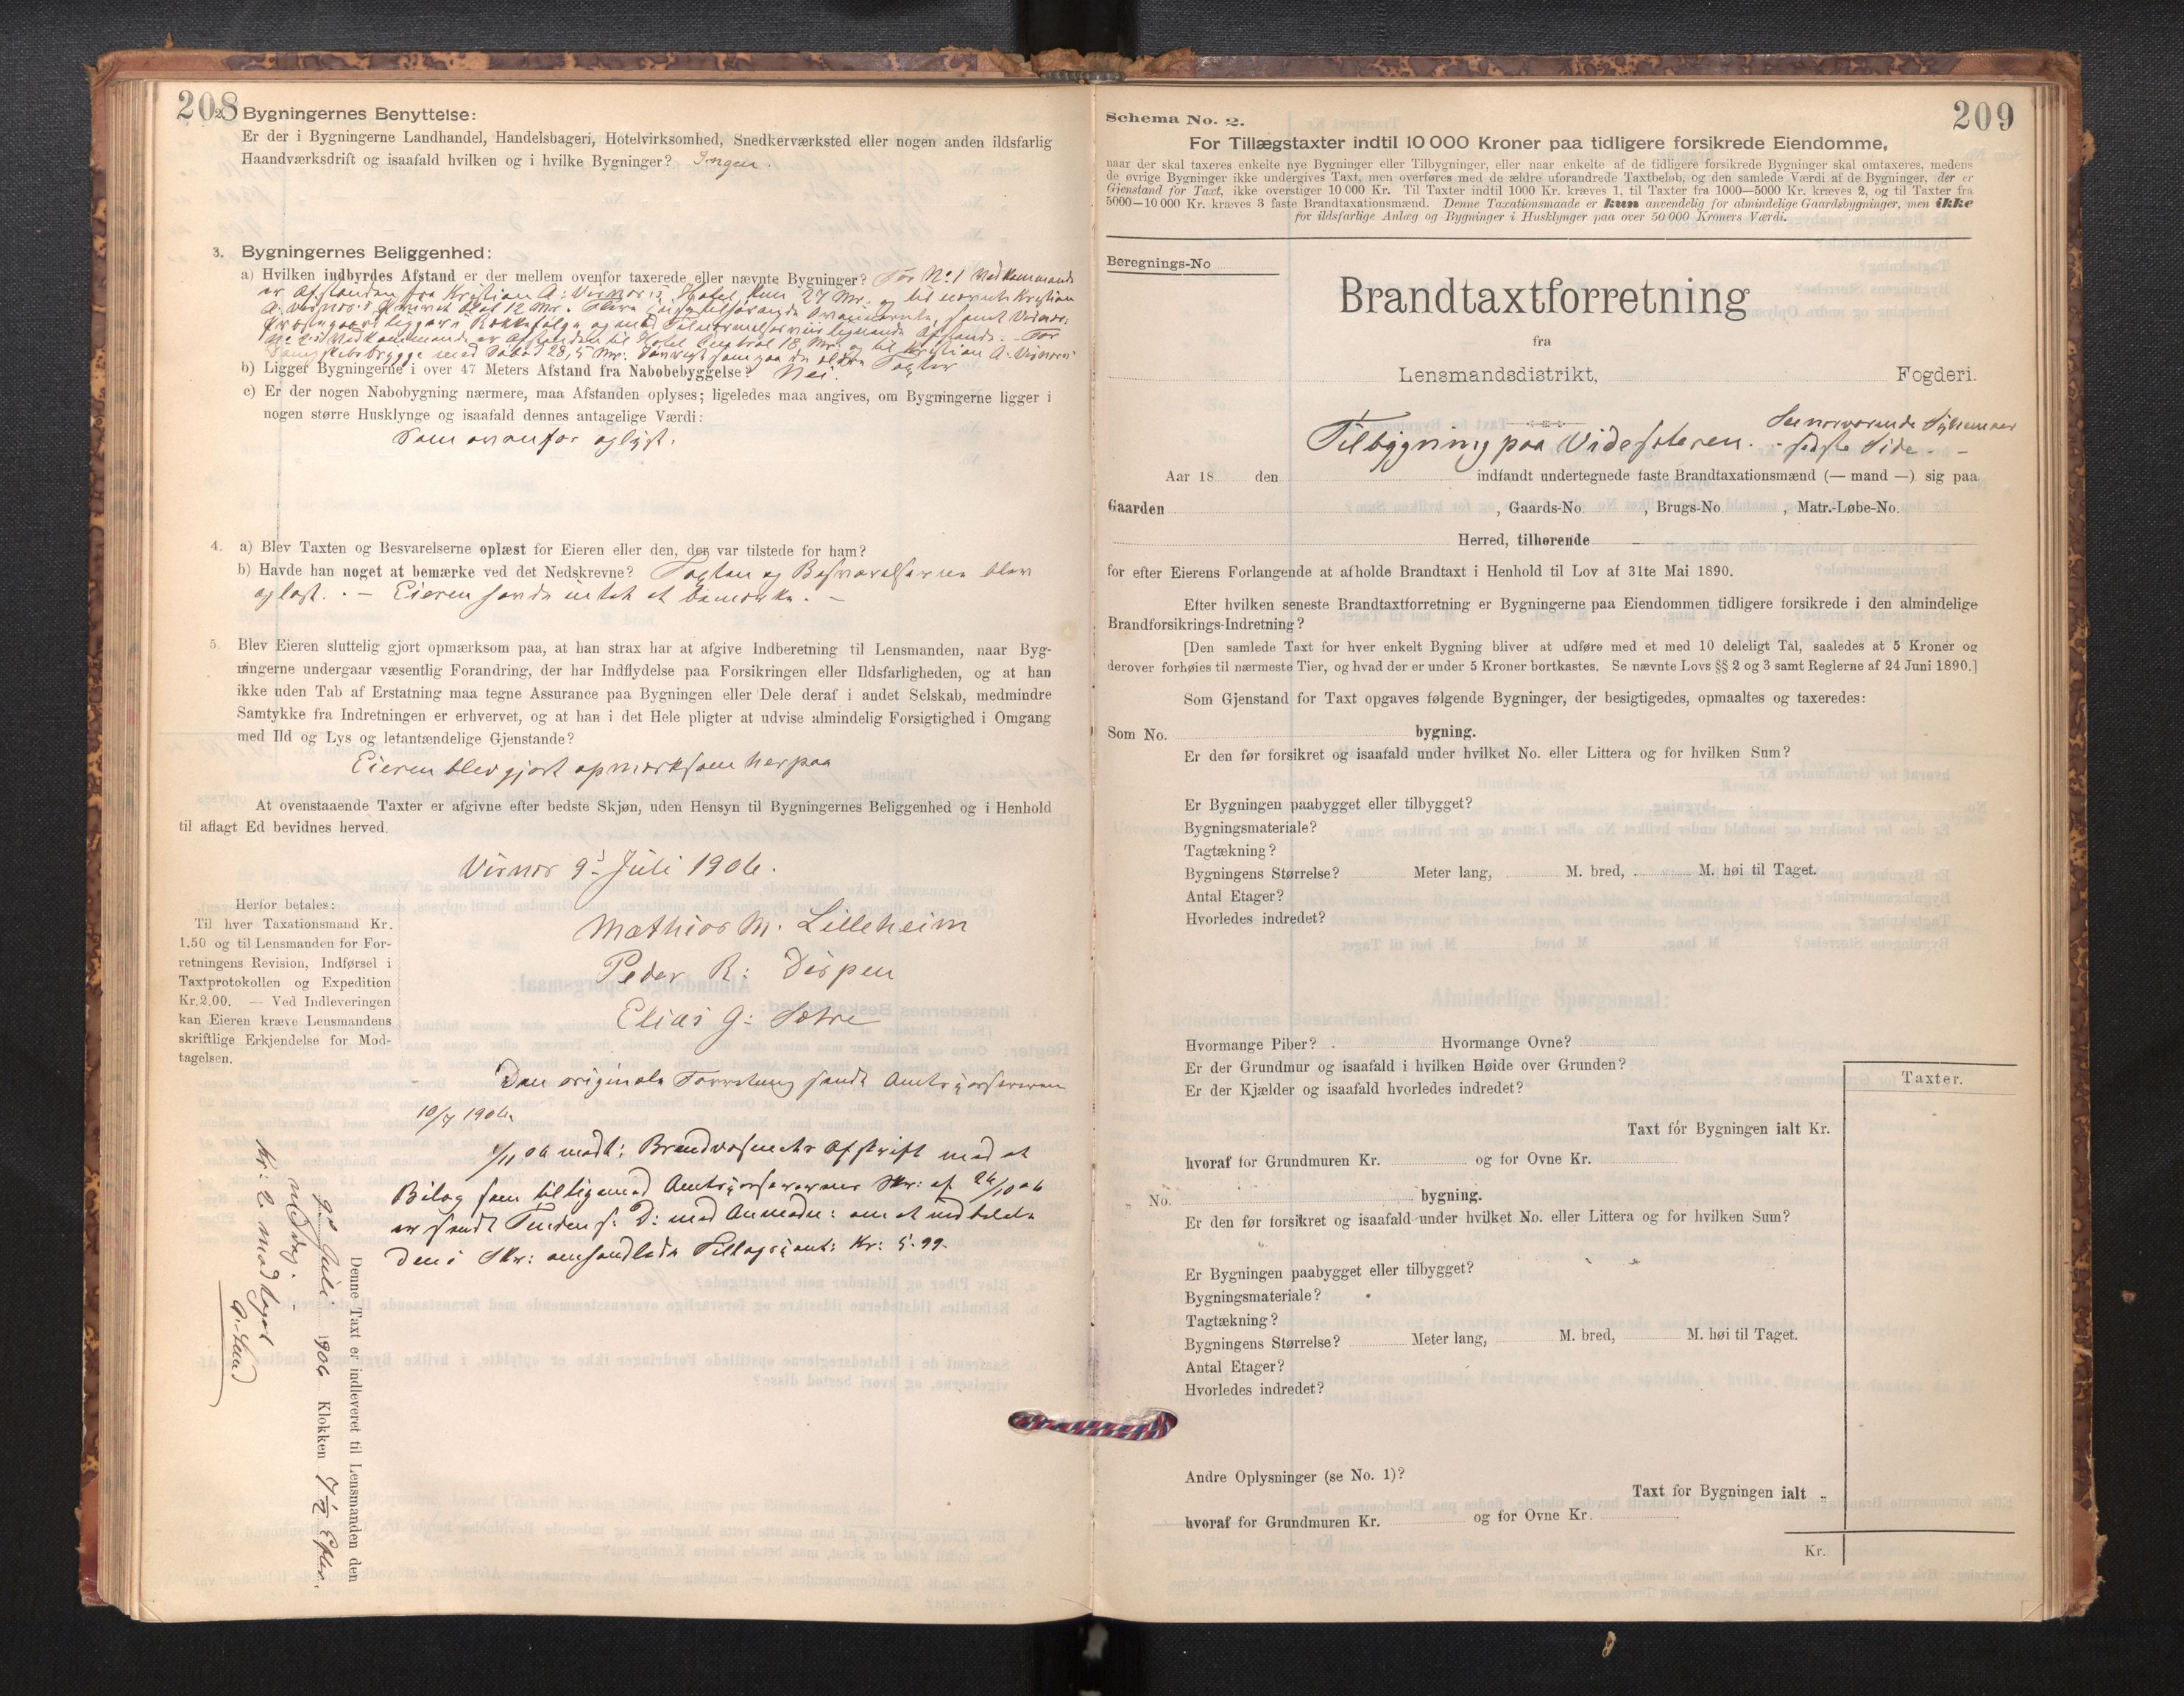 208
2. Bygningernes Benyttelse:
Er der i Bygningerne Landhandel, Handelsbageri, Hotelvirksomhed, Snedkerværksted eller nogen anden ildsfarlig
Haandværksdrift og isaafald hvilken og i hvilke Bygninger? Ingen.
3. Bygningernes Beliggenhed:
a) Hvilken indbyrdes Afstand er der mellem ovenfor taxerede eller nævnte Bygninger? For No 1 Vedkommende
er Afstanden fra Kristian A: Visnæs's Hotel kun 27 Mr. og til nævnte Kristian
A. Visnæs's
No 2's Vedkommende er Afstanden til Hotel Central 18 Mr. og til Kristian A. Visnæs's
Dampskibsbrygge med Søbod 28,5 Mr.
b) Ligger Bygningerne i over 47 Meters Afstand fra Nabobebyggelse? Nei.
c) Er der nogen Nabobygning nærmere, maa Afstanden oplyses; ligeledes maa angives, om Bygningerne ligger i
nogen større Husklynge og isaafald dennes antagelige Værdi:
Som ovenfor oplyst.
4. a) Blev Taxten og Besvarelserne oplæst for Eieren eller den, der var tilstede for ham?
b) Havde han noget at bemærke ved det Nedskrevne? Taxten og Besvarelserne blev
oplæst. - Eieren havde intet at bemærke. -
5. Blev Eieren sluttelig gjort opmærksom paa, at han strax har at afgive Indberetning til Lensmanden, naar Byg-
ningerne undergaar væsentlig Forandring, der har Indflydelse paa Forsikringen eller Ildsfarligheden, og at han
ikke uden Tab af Erstatning maa tegne Assurance paa Bygningen eller Dele deraf i andet Selskab, medmindre
Samtykke fra Indretningen er erhvervet, og at han i det Hele pligter at udvise almindelig Forsigtighed i Omgang
med Ild og Lys og letantændelige Gjenstande?
Eieren blev gjort opmærksom herpaa
At ovenstaaende Taxter er afgivne efter bedste Skjøn, uden Hensyn til Bygningernes Beliggenhed og i Henhold
til aflagt Ed bevidnes herved.
Visnes 9. Juli 1906.
Mathias M. Lilleheim
Peder R: Dispen
Elias G: Sætre
Herfor betales:
Til hver Taxationsmand Kr.
1.50 og til Lensmanden for For-
retningens Revision, Indførsel i
Taxtprotokollen og Expedition
Kr. 2.00. — Ved Indleveringen
kan Eieren kræve Lensmandens
skriftlige Erkjendelse for Mod-
tagelsen.
Den originale Forretning sendt Amtsforvareren
10/7 1906.
1/11 06 modt: Brandvæsenets Afskrift med et
Bilag som tilligemed Amtsforvarerens Skr: af 26/10 06
er sendt Tenden s. D: med Anmodn: om at indbetale
den i Skr: omhandlede Tillægskont: Kr: 5.99.
Denne Taxt er indleveret til Lensmanden den
9. Juli 1906 Klokken 7 1/2 Efter.
middag.
Kr: 2 modtaget
209
Schema No. 2.
For Tillægstaxter indtil 10 000 Kroner paa tidligere forsikrede Eiendomme,
naar der skal taxeres enkelte nye Bygninger eller Tilbygninger, eller naar enkelte af de tidligere forsikrede Bygninger skal omtaxeres, medens
de øvrige Bygninger ikke undergives Taxt, men overføres med de ældre uforandrede Taxtbeløb, og den samlede Værdi af de Bygninger, der er
Gjenstand for Taxt, ikke overstiger 10 000 Kr. Til Taxter indtil 1000 Kr. kræves 1, til Taxter fra 1000—5000 Kr. kræves 2, og til Taxter fra
5000—10 000 Kr. kræves 3 faste Brandtaxationsmænd. Denne Taxationsmaade er kun anvendelig for almindelige Gaardsbygninger, men ikke
for ildsfarlige Anlæg og Bygninger i Husklynger paa over 50 000 Kroners Værdi.
Beregnings-No
Brandtaxtforretning
fra
Lensmandsdistrikt, Fogderi.
Tilbygning paa Videsæteren.
sidste Side. -
Aar 18 den indfandt undertegnede faste Brandtaxationsmænd (— mand —) sig paa
Gaarden , Gaards-No. , Brugs-No. , Matr.-Løbe-No.
Herred, tilhørende
for efter Eierens Forlangende at afholde Brandtaxt i Henhold til Lov af 31te Mai 1890.
Efter hvilken seneste Brandtaxtforretning er Bygningerne paa Eiendommen tidligere forsikrede i den almindelige
Brandforsikrings-Indretning?
[Den samlede Taxt for hver enkelt Bygning bliver at udføre med et med 10 deleligt Tal, saaledes at 5 Kroner og
derover forhøies til nærmeste Tier, og hvad der er under 5 Kroner bortkastes. Se nævnte Lovs §§ 2 og 3 samt Reglerne af 24 Juni 1890.]
Som Gjenstand for Taxt opgaves følgende Bygninger, der besigtigedes, opmaaltes og taxeredes:
Som No. bygning.
Er den før forsikret og isaafald under hvilket No. eller Littera og for hvilken Sum?
Er Bygningen paabygget eller tilbygget?
Bygningsmateriale?
Tagtækning?
Bygningens Størrelse? Meter lang, M. bred, M. høi til Taget.
Antal Etager?
Hvorledes indredet?
Hvormange Piber? Hvormange Ovne?
Er der Grundmur og isaafald i hvilken Høide over Grunden?
Er der Kjælder og isaafald hvorledes indredet?
Taxter.
Taxt for Bygningen ialt Kr.
hvoraf for Grundmuren Kr. og for Ovne Kr.
No. bygning.
Er den før forsikret og isaafald under hvilket No. eller Littera og for hvilken Sum?
Er Bygningen paabygget eller tilbygget?
Bygningsmateriale?
Tagtækning?
Bygningens Størrelse? Meter lang, M. bred, M. høi til Taget.
Antal Etager?
Hvorledes indredet?
Andre Oplysninger (se No. 1)?
Taxt for Bygningen ialt „
hvoraf for Grundmuren Kr. og for Ovne Kr.
Kr.